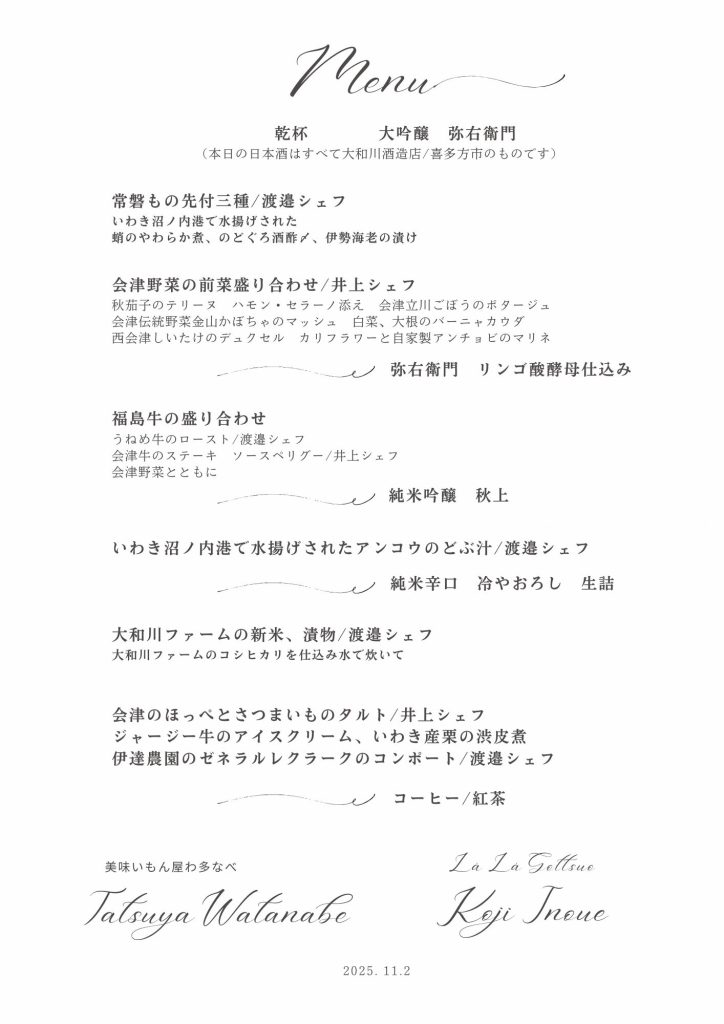 Menu
乾杯　　　　大吟醸　弥右衛門
（本日の日本酒はすべて大和川酒造店/喜多方市のものです）
常磐もの先付三種/渡邉シェフ
いわき沼ノ内港で水揚げされた
蛸のやわらか煮、のどぐろ酒酢〆、伊勢海老の漬け
会津野菜の前菜盛り合わせ/井上シェフ
秋茄子のテリーヌ　ハモン・セラーノ添え　会津立川ごぼうのポタージュ
会津伝統野菜金山かぼちゃのマッシュ　白菜、大根のバーニャカウダ
西会津しいたけのデュクセル　カリフラワーと自家製アンチョビのマリネ
弥右衛門　リンゴ酸酵母仕込み
福島牛の盛り合わせ
うねめ牛のロースト/渡邉シェフ
会津牛のステーキ　ソースペリグー/井上シェフ
会津野菜とともに
純米吟醸　秋上
いわき沼ノ内港で水揚げされたアンコウのどぶ汁/渡邉シェフ
純米辛口　冷やおろし　生詰
大和川ファームの新米、漬物/渡邉シェフ
大和川ファームのコシヒカリを仕込み水で炊いて
会津のほっぺとさつまいものタルト/井上シェフ
ジャージー牛のアイスクリーム、いわき産栗の渋皮煮
伊達農園のゼネラルレクラークのコンポート/渡邉シェフ
コーヒー/紅茶
美味いもん屋わ多なべ
Tatsuya Watanabe
La La Gettsuo
Koji Inoue
2025. 11.2